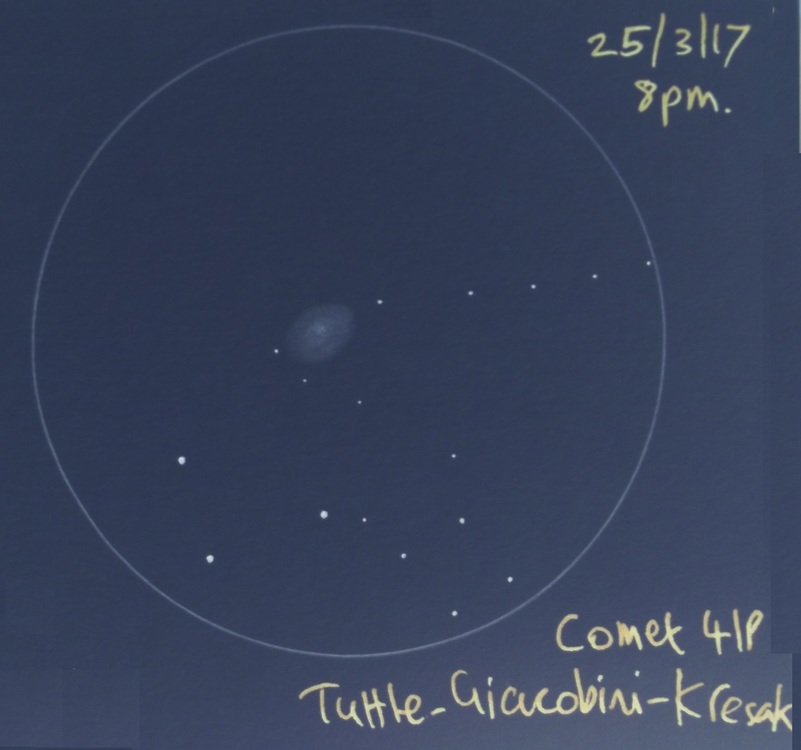 25/3/17
8pm.
Comet 41P
Tuttle-Giacobini-Kresak